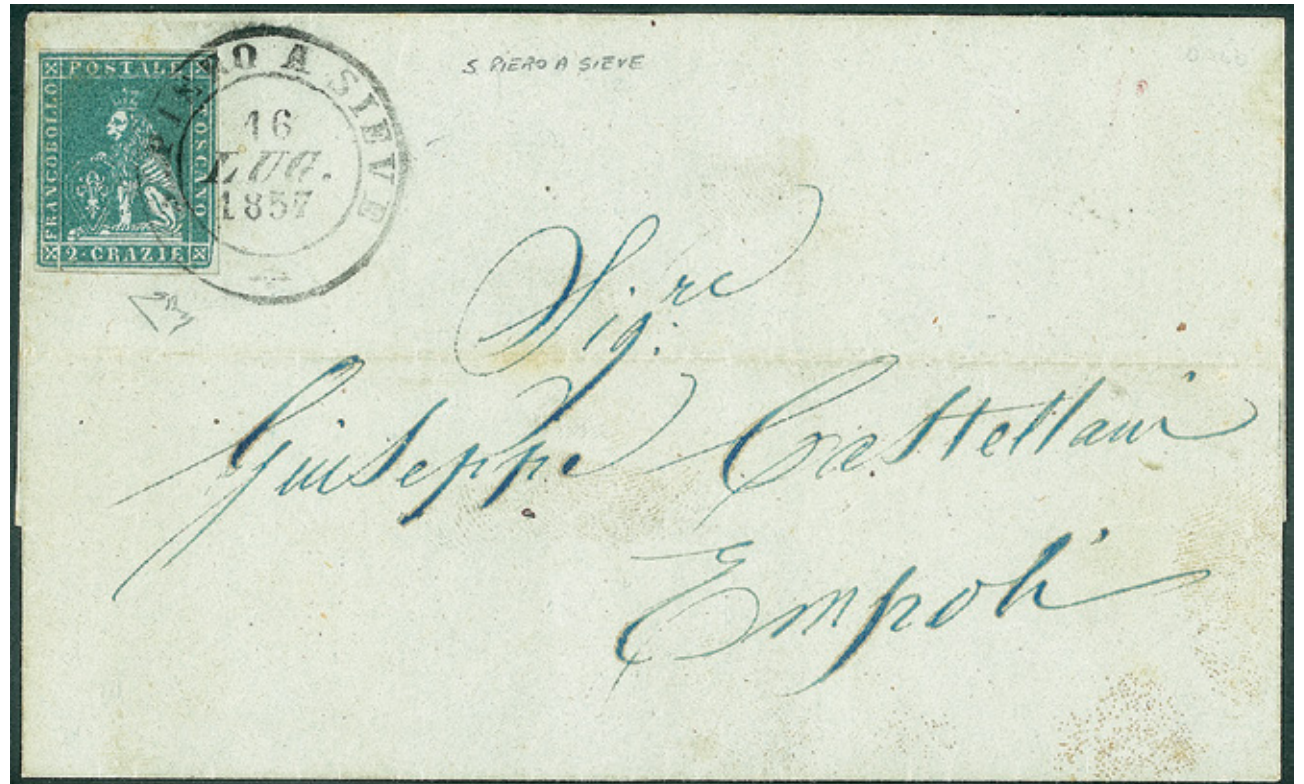 POSTALE
FRANCOBOLLO
TOSCANO
2·CRAZIE
PIERO A SIEVE
16
LUG.
1857
S. PIERO A SIEVE
Sig.re
Giuseppe Castellani
Empoli